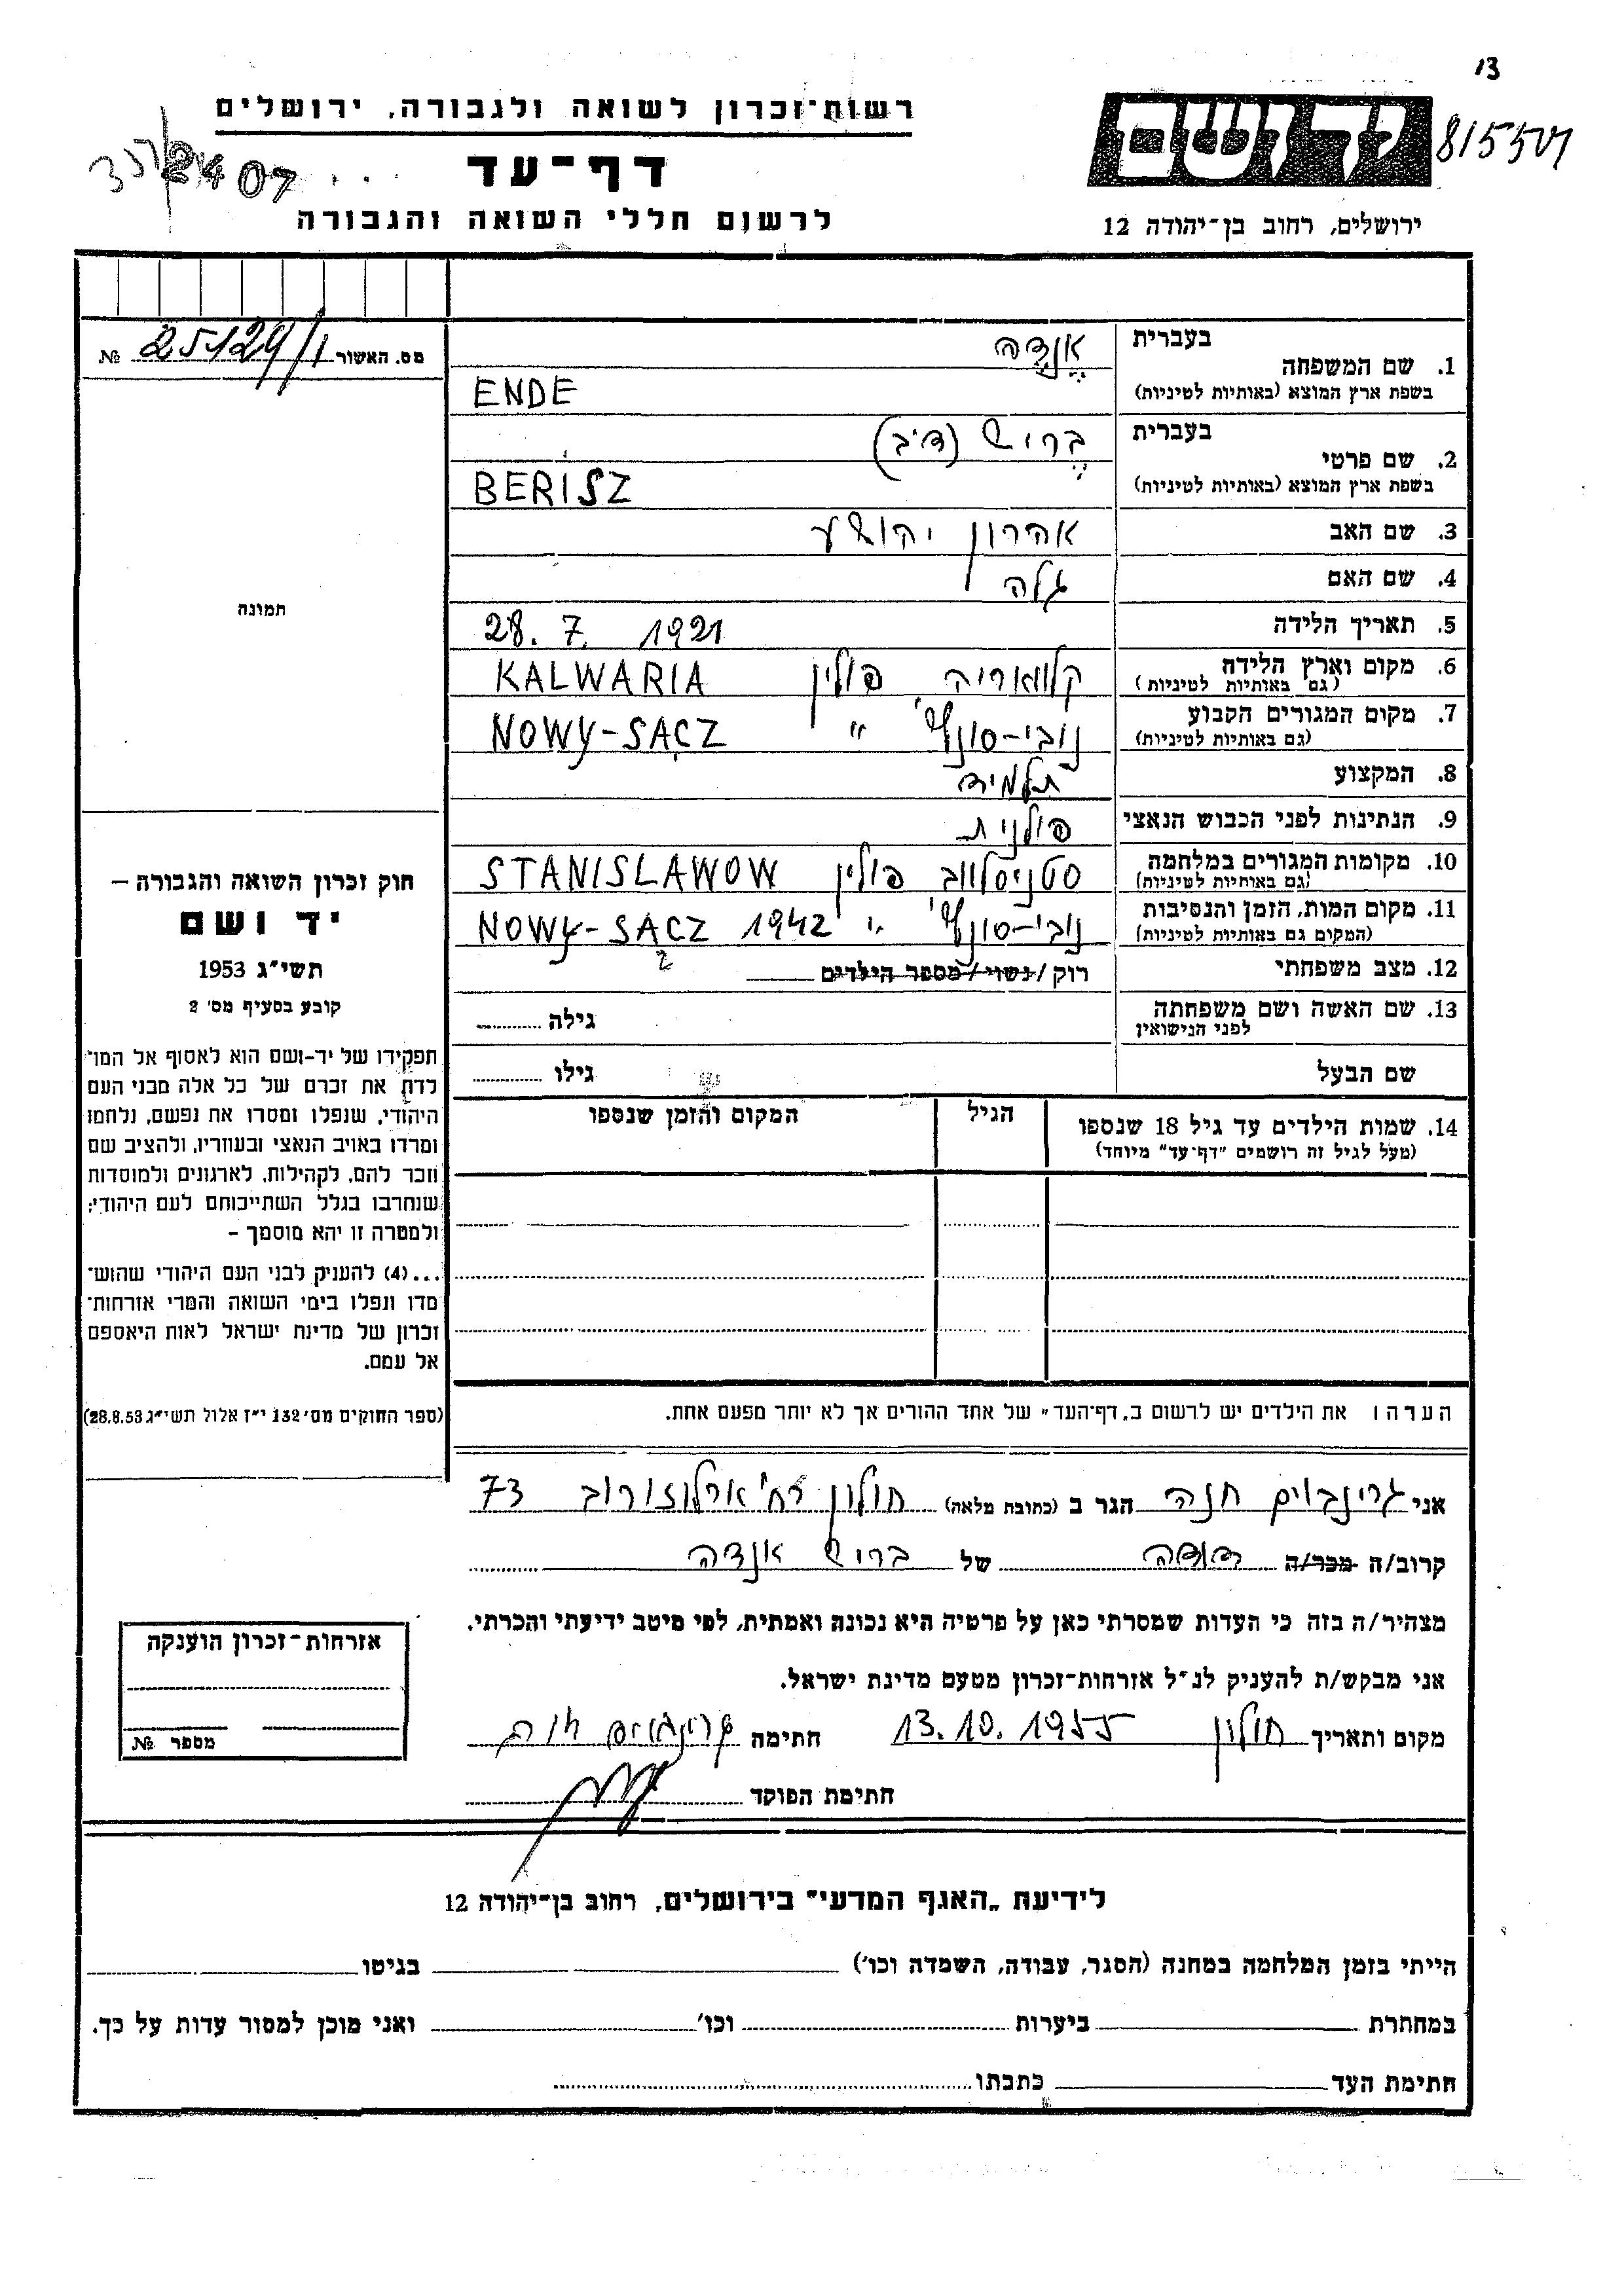 13
רשות־זכרון לשואה ולגבורה, ירושלים
דף־עד
לרשום חללי השואה והגבורה
יד ושם
ירושלים, רחוב בן־יהודה 12
מס. האשור 25129/1 №
תמונה
חוק זכרון השואה והגבורה –
יד ושם
תשי״ג 1953
קובע בסעיף מס׳ 2
תפקידו של יד-ושם הוא לאסוף אל המו־
לדת את זכרם של כל אלה מבני העם
היהודי, שנפלו ומסרו את נפשם, נלחמו
ומרדו באויב הנאצי ובעוזריו, ולהציב שם
וזכר להם, לקהילות, לארגונים ולמוסדות
שנחרבו בגלל השתייכותם לעם היהודי;
ולמטרה זו יהא מוסמך –
...(4) להעניק לבני העם היהודי שהוש־
מדו ונפלו בימי השואה והמרי אזרחות־
זכרון של מדינת ישראל לאות היאספם
אל עמם.
(ספר החוקים מס׳ 132 י״ז אלול תשי״ג 28.8.53)
בעברית אֶנְדֶה
1. שם המשפחה
בשפת ארץ המוצא (באותיות לטיניות) ENDE
בעברית בֶּריש (דיב)
2. שם פרטי
בשפת ארץ המוצא (באותיות לטיניות) BERISZ
3. שם האב אהרון יהושע
4. שם האם גלה
5. תאריך הלידה 28. 7. 1921
6. מקום וארץ הלידה קלוואריה פולין KALWARIA
(גם באותיות לטיניות)
7. מקום המגורים הקבוע נובי-סונץ׳ ״ NOWY-SĄCZ
(גם באותיות לטיניות)
8. המקצוע תלמיד
9. הנתינות לפני הכבוש הנאצי פולנית
10. מקומות המגורים במלחמה סטניסלווב פולין STANISLAWOW
(גם באותיות לטיניות)
11. מקום המות, הזמן והנסיבות נובי-סונץ׳ ״ 1942 NOWY-SĄCZ
(המקום גם באותיות לטיניות)
12. מצב משפחתי רוק / נשוי / מספר הילדים
13. שם האשה ושם משפחתה גילה
לפני הנישואין
שם הבעל גילו
14. שמות הילדים עד גיל 18 שנספו הגיל המקום והזמן שנספו
(מעל לגיל זה רושמים "דף־עד" מיוחד)
הערה: את הילדים יש לרשום ב„דף־העד" של אחד ההורים אך לא יותר מפעם אחת.
אני גרינבוים חנה הגר ב (כתובת מלאה) חולון רח׳ ארלוזורוב 73
קרוב/ה מכר/ה דודה של בריש אנדה
מצהיר/ה בזה כי העדות שמסרתי כאן על פרטיה היא נכונה ואמתית, לפי מיטב ידיעתי והכרתי.
אני מבקש/ת להעניק לנ״ל אזרחות-זכרון מטעם מדינת ישראל.
מקום ותאריך חולון 13.10.1955 חתימה גרינבוים חנה
חתימת הפוקד
אזרחות-זכרון הוענקה
מספר №
לידיעת „האגף המדעי" בירושלים, רחוב בן־יהודה 12
הייתי בזמן המלחמה במחנה (הסגר, עבודה, השמדה וכו׳) בגיטו
במחתרת ביערות וכו׳ ואני מוכן למסור עדות על כך.
חתימת העד כתבתו